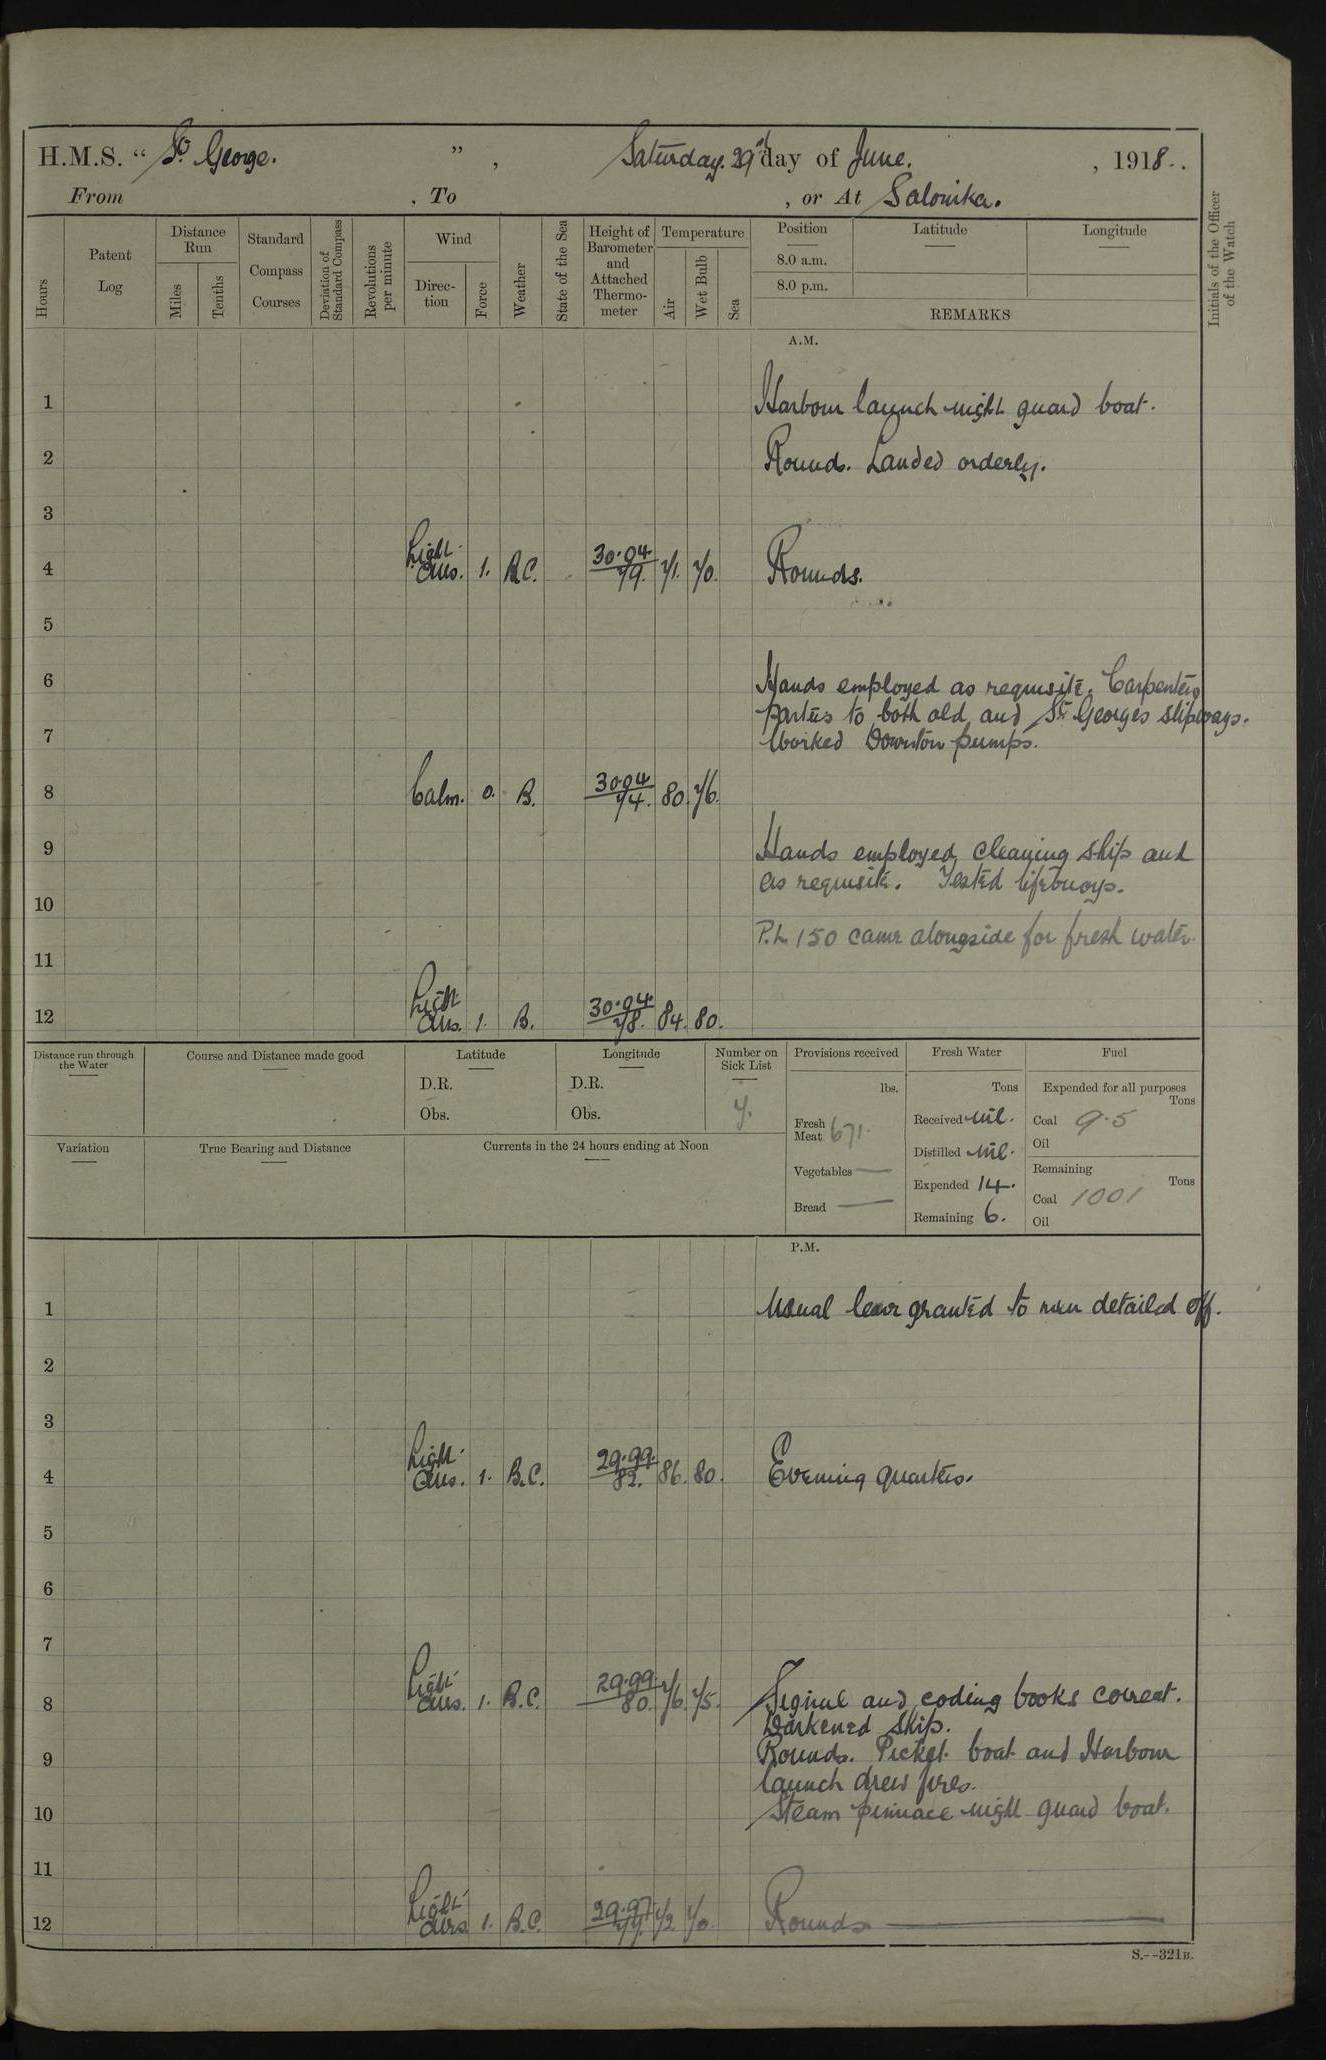 H.M.S. “ St. George. ” , Saturday. 29th day of June. , 1918..
From , To , or At Salonika.
Hours
Patent Log
Distance Run
Miles
Tenths
Standard Compass Courses
Deviation of Standard Compass
Revolutions per minute
Wind
Direction
Force
Weather
State of the Sea
Height of Barometer and Attached Thermometer
Temperature
Air
Wet Bulb
Sea
Position
8.0 a.m.
8.0 p.m.
Latitude
Longitude
REMARKS
Initials of the Officer of the Watch
A.M.
1 Harbour launch night guard boat.
2 Rounds. Landed orderly.
3
4 Light airs. 1. B.C. 30.04. 79. 71. 70. Rounds.
5
6 Hands employed as requisite. Carpenters
parties to both old and St. Georges slipways.
7 Worked Downton pumps.
8 Calm. 0. B. 30.04 74. 80. 76.
9 Hands employed cleaning ship and
as requisite. Tested lifebuoys.
10
P.L 150 came alongside for fresh water
11
12 Light airs. 1. B. 30.04. 78. 84. 80.
Distance run through the Water
Course and Distance made good
Latitude
D.R.
Obs.
Longitude
D.R.
Obs.
Number on Sick List
7.
Provisions received
lbs.
Fresh Meat 671.
Vegetables —
Bread —
Fresh Water
Tons
Received nil.
Distilled nil.
Expended 14.
Remaining 6.
Fuel
Expended for all purposes
Tons
Coal 9.5
Oil
Remaining
Tons
Coal 1001
Oil
Variation
True Bearing and Distance
Currents in the 24 hours ending at Noon
P.M.
1 Usual leave granted to men detailed off.
2
3
4 Light airs. 1. B.C. 29.99. 82. 86. 80. Evening quarters.
5
6
7
8 Light airs. 1. B.C. 29.99. 80. 76. 75. Signal and coding books correct.
Darkened ship.
9 Rounds. Picket boat and Harbour
launch drew fires.
10 Steam pinnace night guard boat.
11
12 Light airs 1. B.C. 29.97. 77. 72. 70. Rounds
S.--321B.